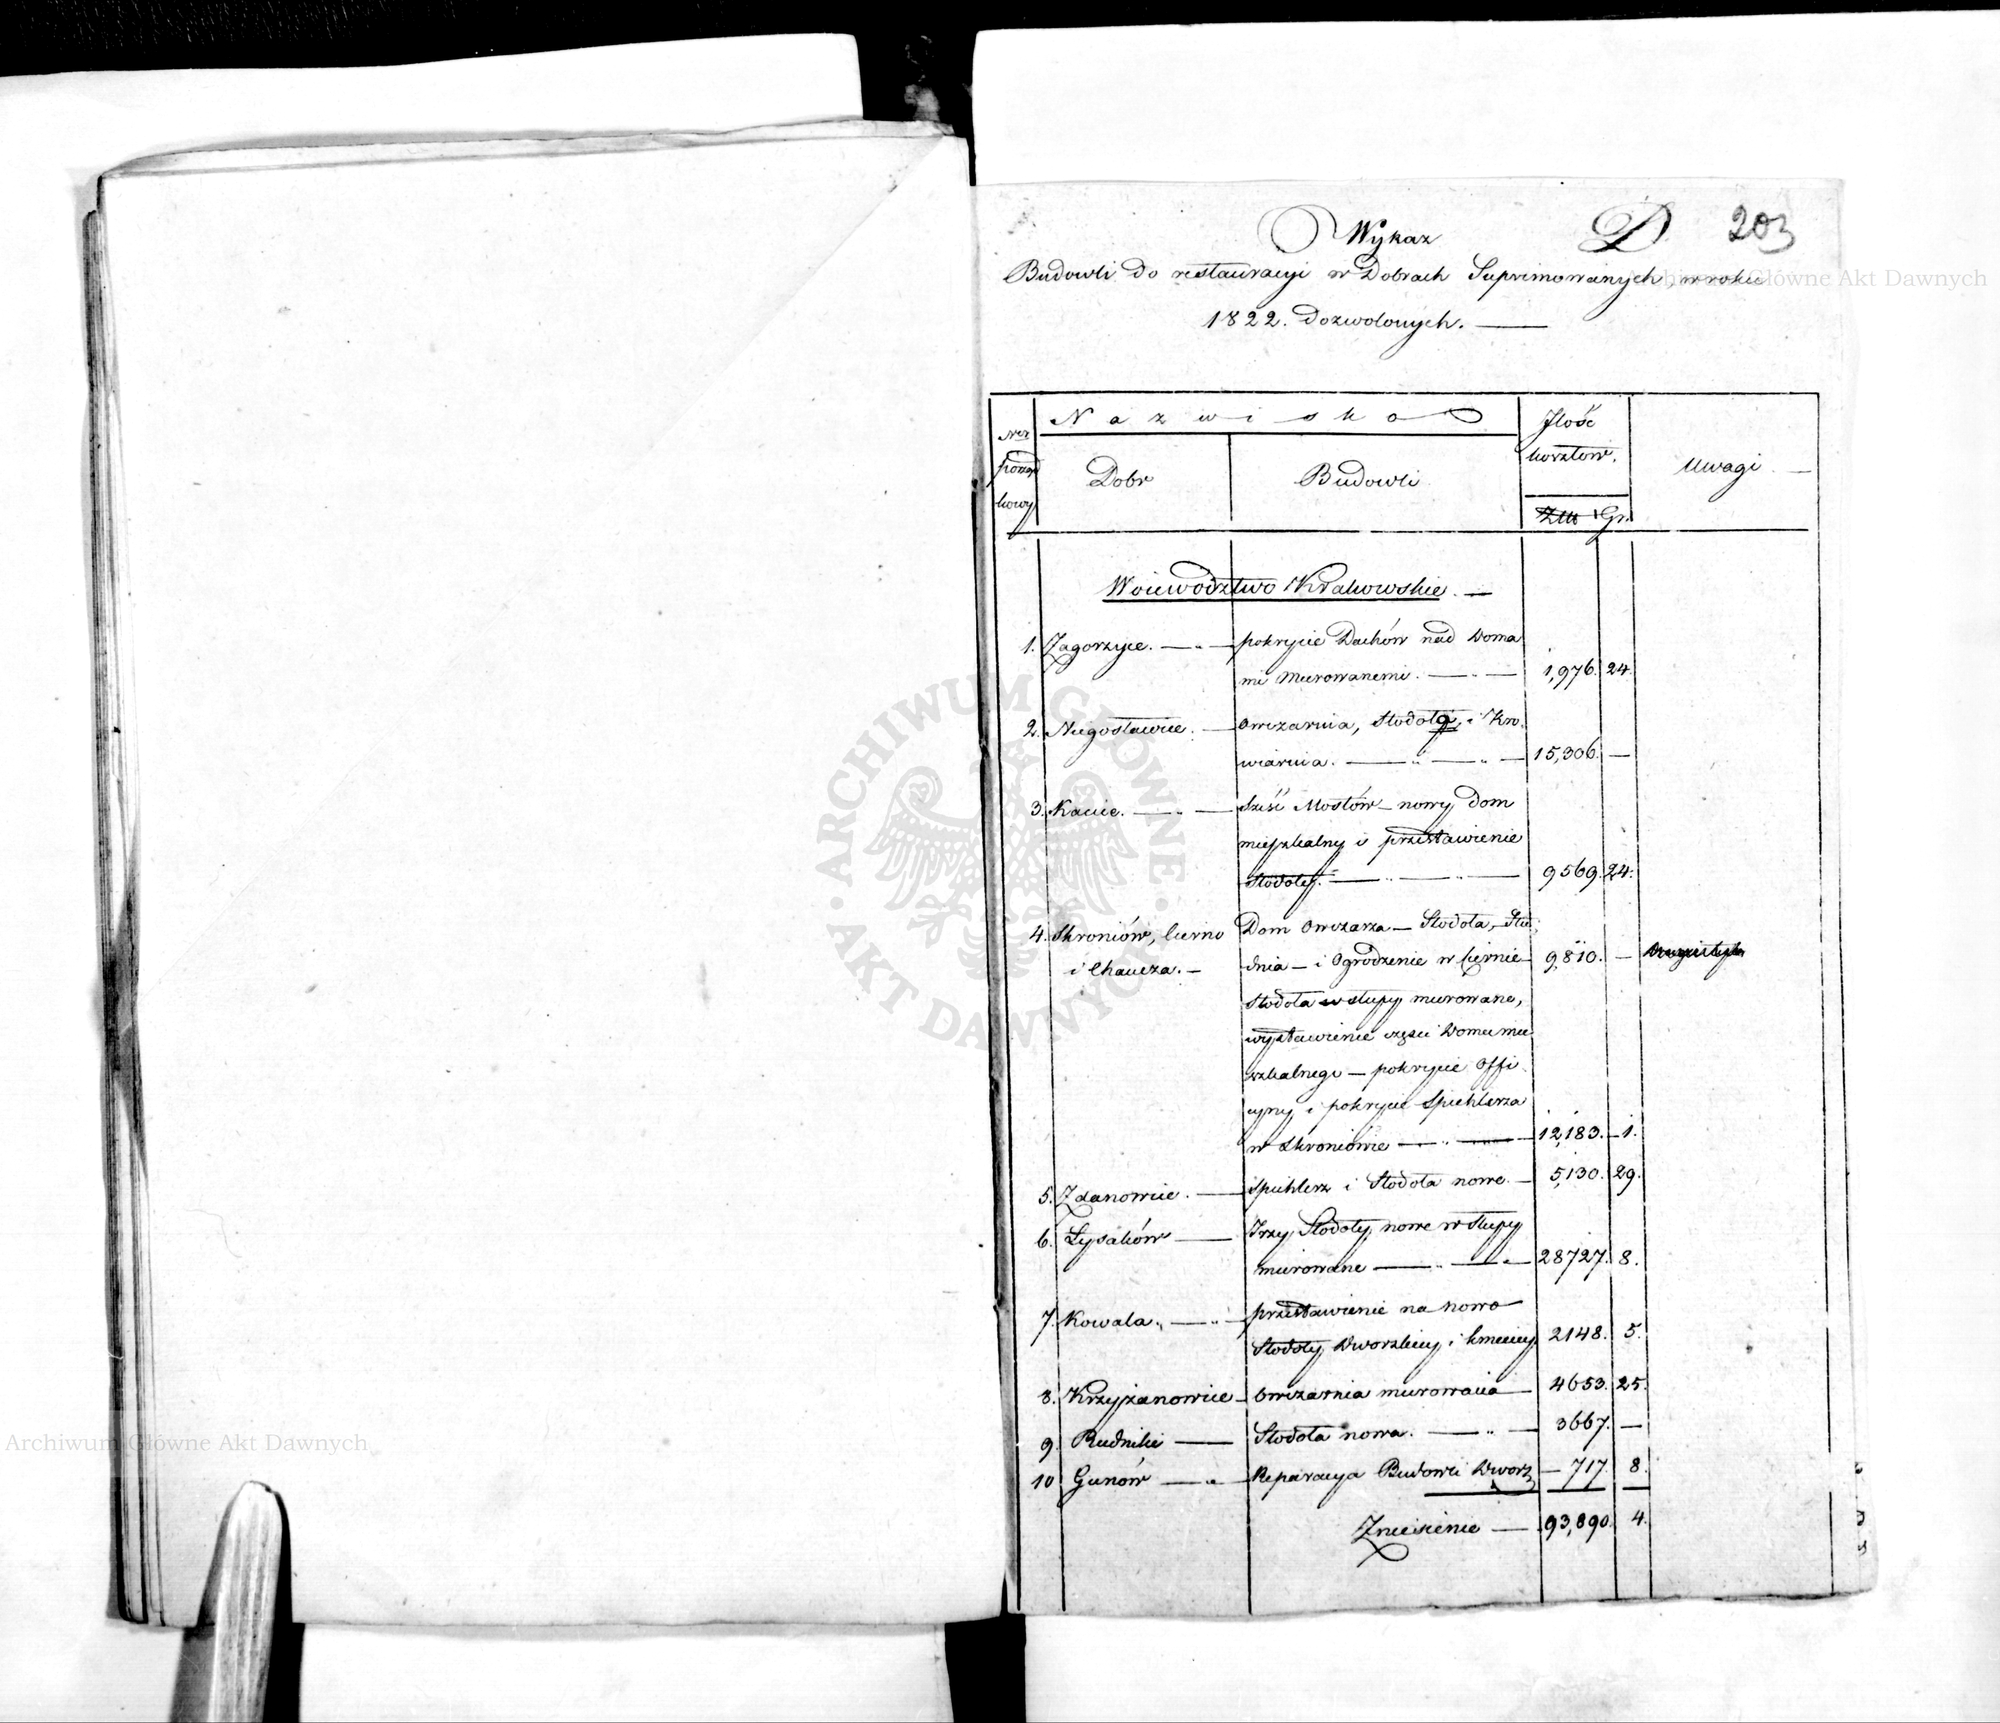 D 203
Wykaz
Budowli do restauracyi w Dobrach Suprimowanych, w roku
1822. dozwolonych.
Ner porządkowy
Nazwisko
Dobr
Budowli
Ilość kosztów.
Złł Gr.
Uwagi
Woiewodztwo Krakowskie.
1. Zagorzyce. pokrycie Dachów nad Doma
mi Murowanemi. 1,976. 24.
2. Niegosławice. Owczarnia, Stodoła, i Kro.
wiarnia. 15,306. —
3. Kacice. Sześć Mostów — nowy dom
mieszkalny i przestawienie
Stodoły. 9569. 24.
4. Skroniów, Cierno Dom Owczarza — Stodoła, Stu
i Chaucza. dnia — i Ogrodzenie w Ciernie 9,810. —
Stodoła w słupy murowane,
wystawienie części Domu mie
szkalnego — pokrycie Offi
cyny i pokrycie Spichlerza
w Skroniowie 12,183. 1.
5. Zdanowice. Spichlerz i Stodoła nowe 5,130. 29.
6. Łysaków Trzy Stodoły nowe w słupy
murowane 28727. 8.
7. Kowala. przestawienie na nowo
Stodoły Dworskiey i kmiecey 2148. 5.
8. Krzyżanowice Owczarnia murowana 4653. 25.
9. Rudniki Stodoła nowa. 3667. —
10 Gunów Reparacya Budowli Dworz 717. 8.
Zniesienie 93,890. 4.
Archiwum Główne Akt Dawnych
Archiwum Główne Akt Dawnych
ARCHIWUM GŁÓWNE AKT DAWNYCH